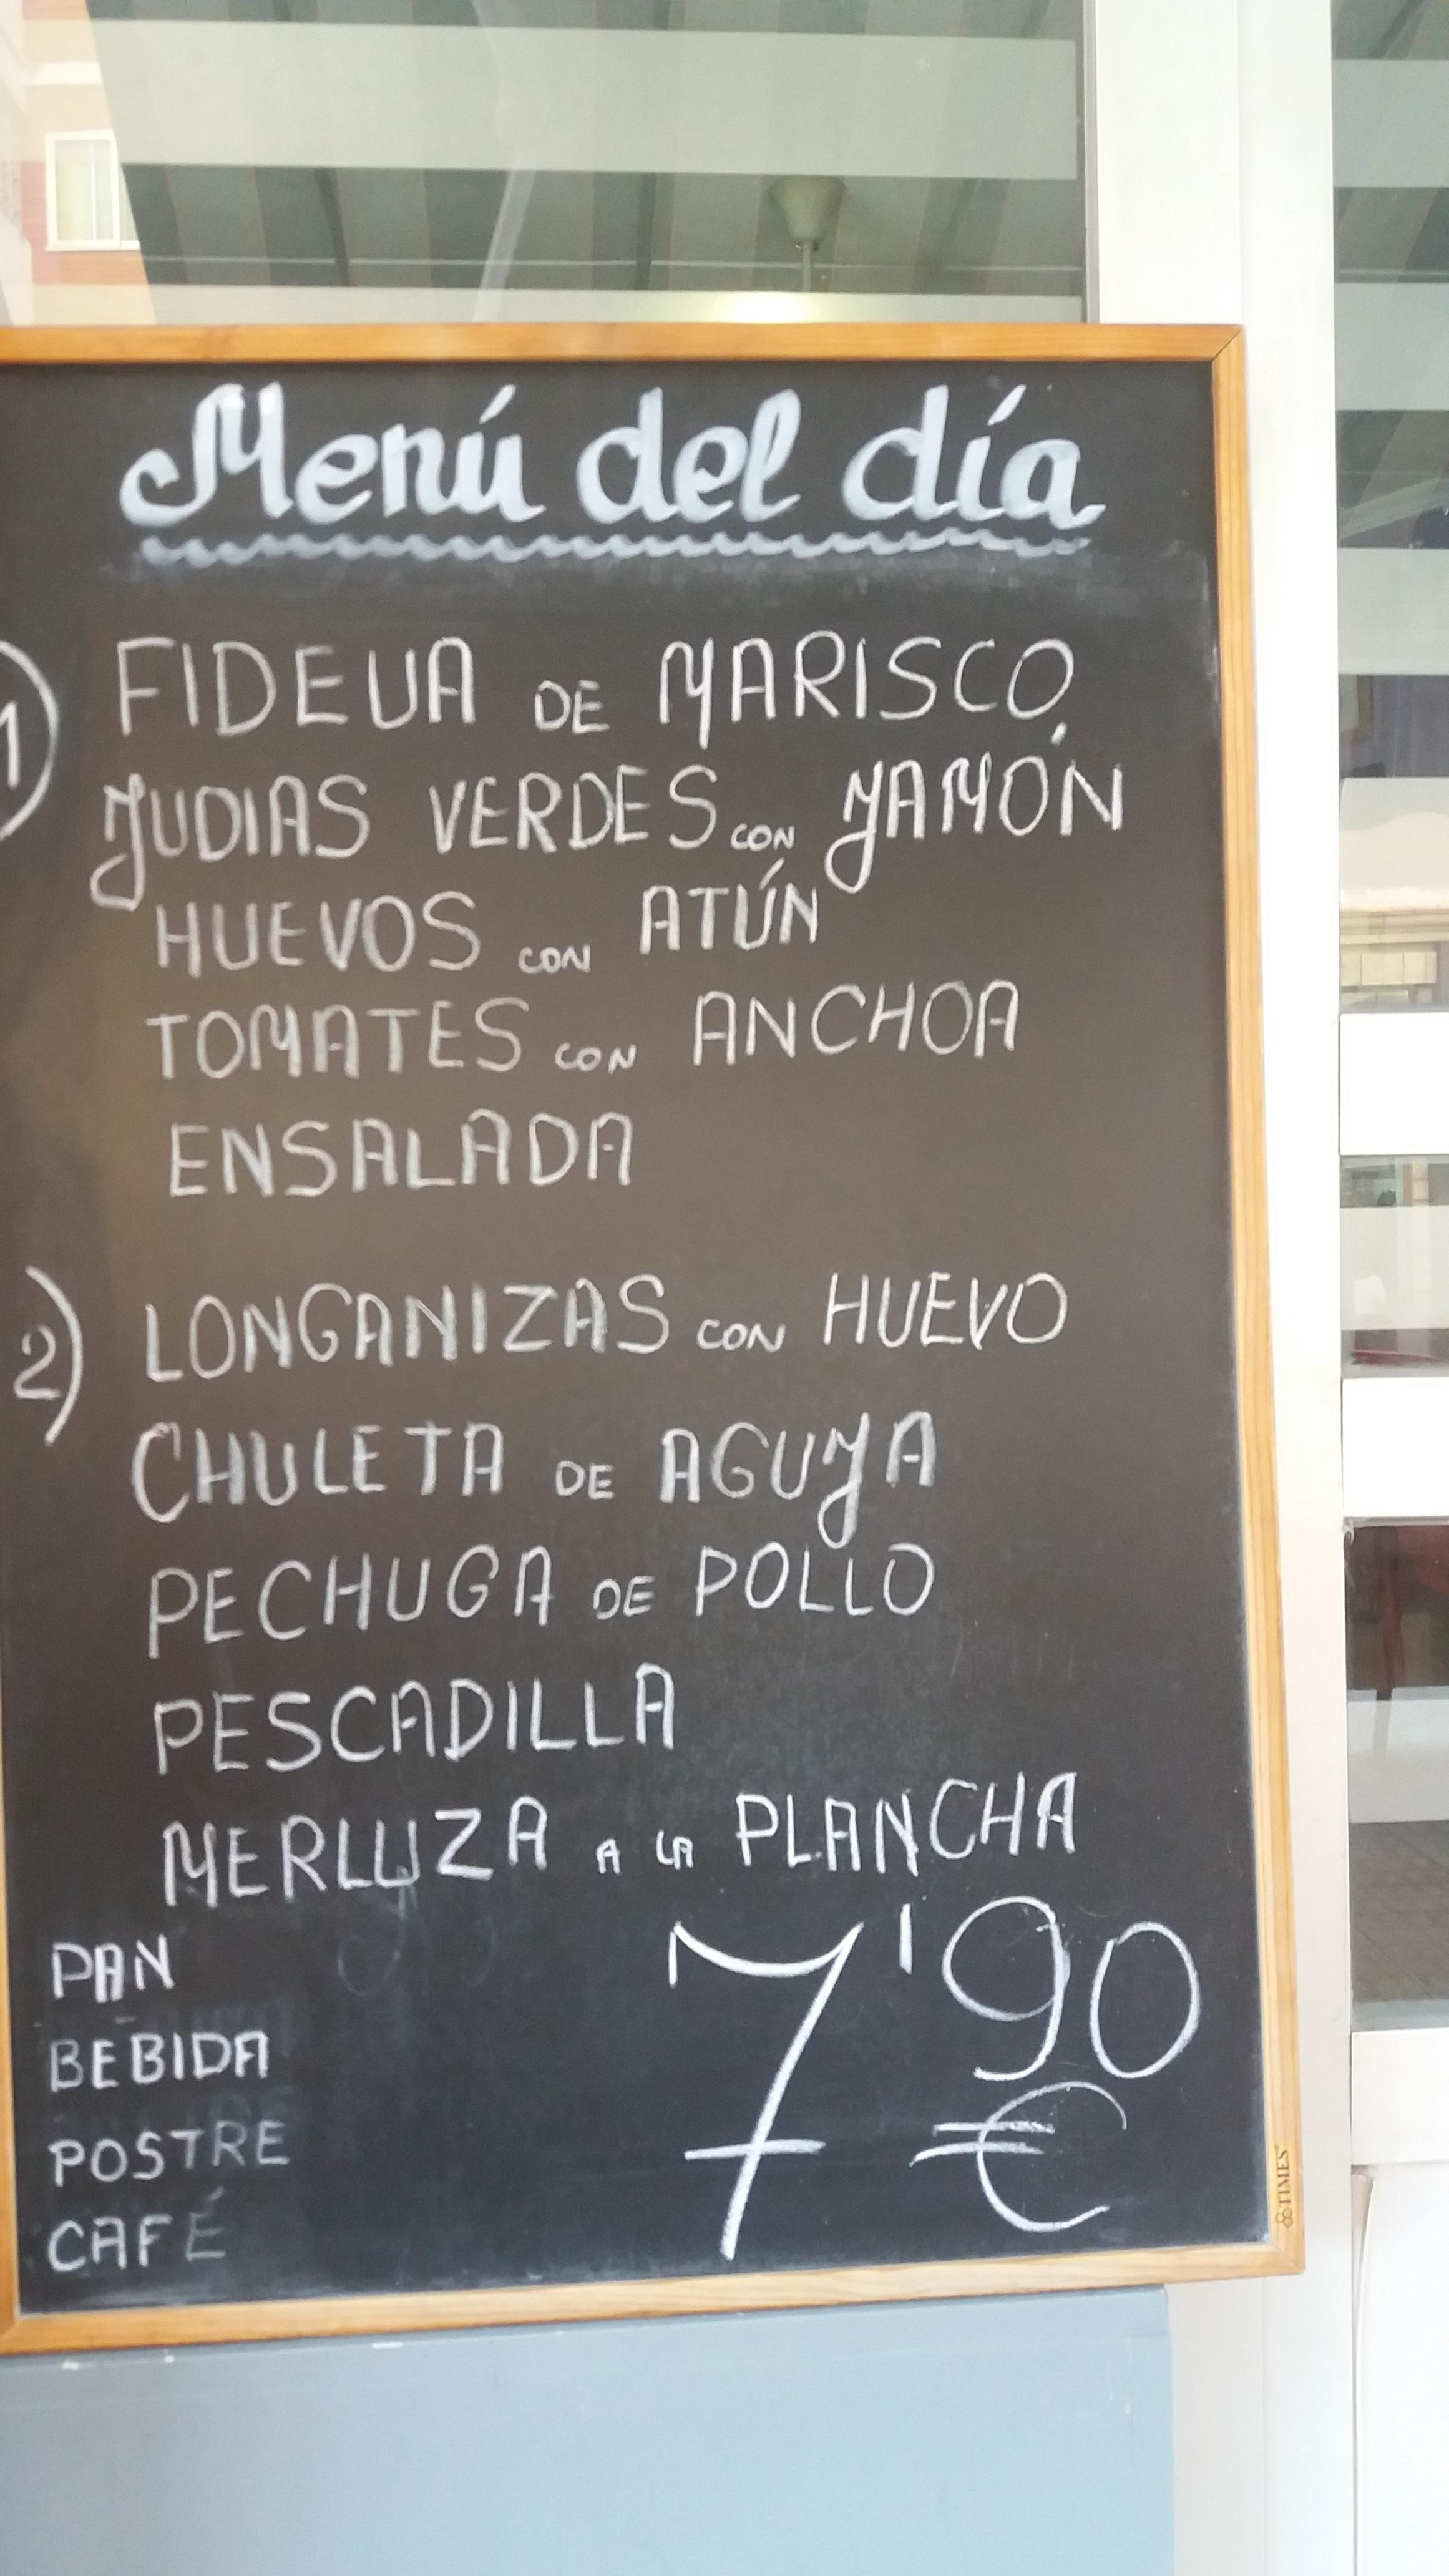 Menú del día
1) FIDEUA DE MARISCO
JUDIAS VERDES CON JAMÓN
HUEVOS CON ATÚN
TOMATES CON ANCHOA
ENSALADA
2) LONGANIZAS CON HUEVO
CHULETA DE AGUJA
PECHUGA DE POLLO
PESCADILLA
MERLUZA A LA PLANCHA
PAN
BEBIDA
POSTRE
CAFÉ
7'90
€
TIMES